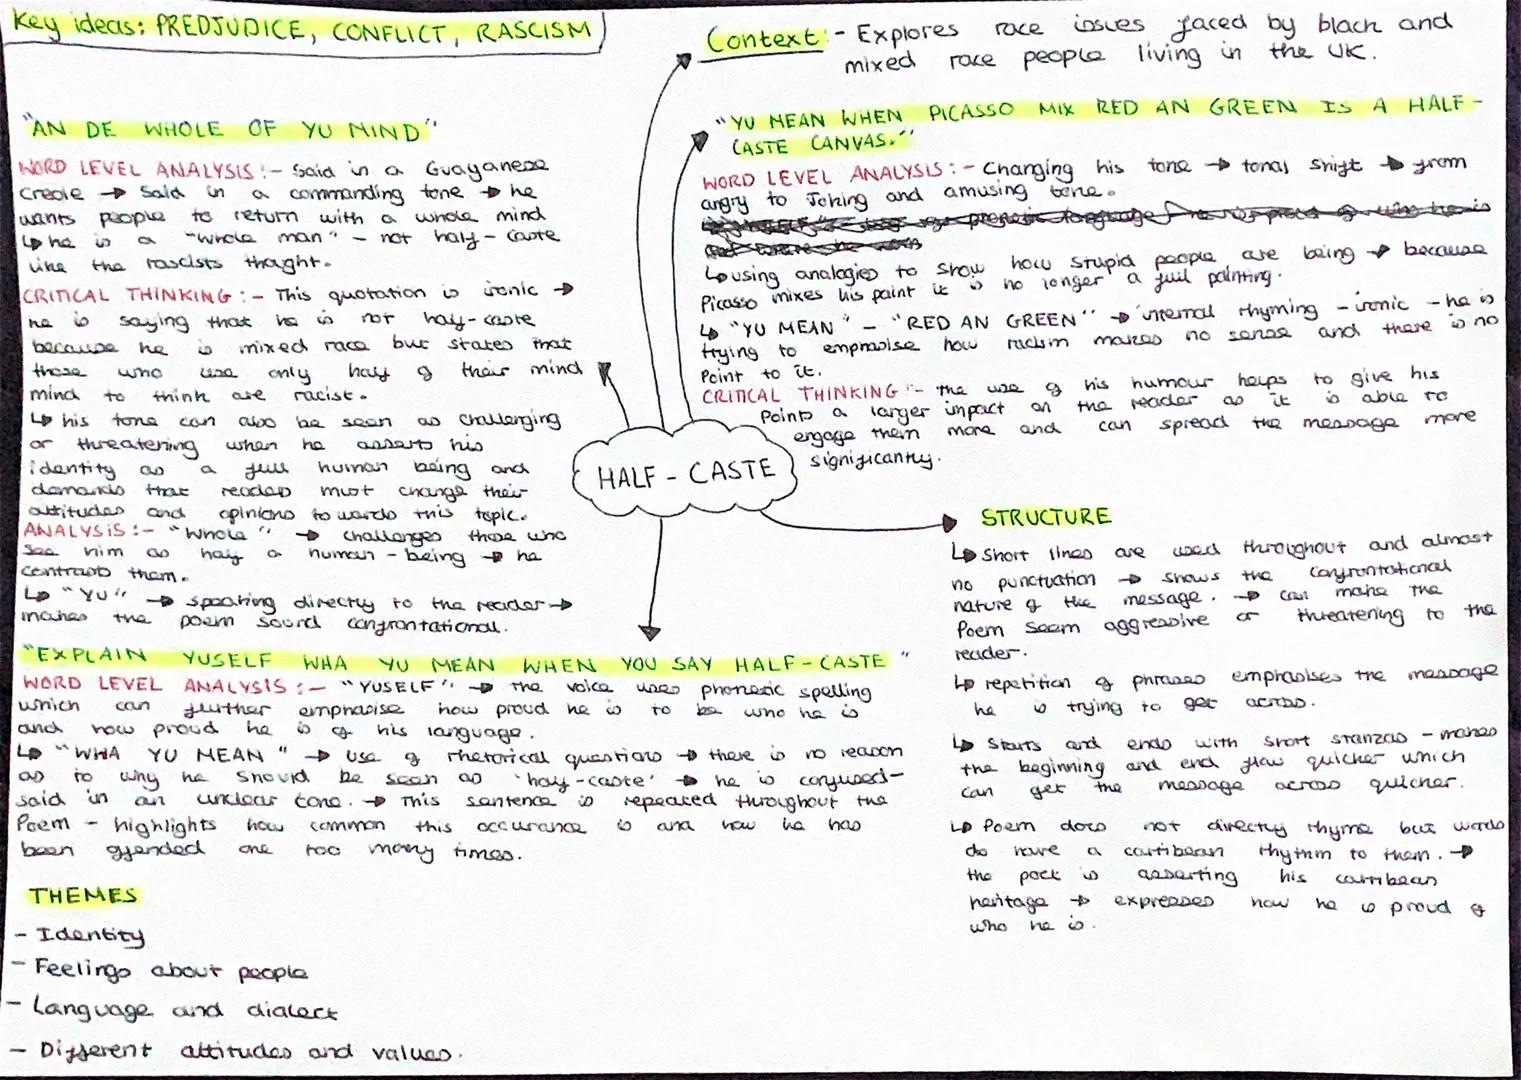 Key ideas: PREDJUDICE, CONFLICT, RASCISM
Context:- Explores race issues faced by black and
mixed race people living in the UK.
"AN DE WHOLE OF YU MIND"
WORD LEVEL ANALYSIS:- Said in a Guayanese
Creole → Said in a commanding tone → he
wants people to return with a whole mind
↳ he is a "whole man" - not half-caste
like the rascists thought.
CRITICAL THINKING:- This quotation is ironic →
he is saying that he is not half-caste
because he is mixed race but states that
those who use only half of their mind
mind to think are racist.
↳ his tone can also be seen as challenging
or threatening when he asserts his
identity as a full human being and
demands that readers must change their
attitudes and opinions towards this topic.
ANALYSIS:- "Whole" → challenges those who
see him as half a human-being → he
contrasts them.
↳ "YU" → speaking directly to the reader →
makes the poem sound confrontational.
"YU MEAN WHEN PICASSO MIX RED AN GREEN IS A HALF-
CASTE CANVAS."
WORD LEVEL ANALYSIS:- Changing his tone → tonal shift → from
angry to Joking and amusing tone.
↳ using analogies to show how stupid people are being → because
Picasso mixes his paint it is no longer a full painting.
↳ "YU MEAN" - "RED AN GREEN" → internal rhyming - ironic - he is
trying to emphasise how racism makes no sense and there is no
Point to it.
CRITICAL THINKING:- the use of his humour helps to give his
Points a larger impact on the reader as it is able to
engage them more and can spread the message more
significantly.
HALF-CASTE
STRUCTURE
↳ Short lines are used throughout and almost
no punctuation → shows the confrontational
nature of the message. → can make the
Poem seem aggressive or threatening to the
reader.
↳ repetition of phrases emphasises the message
he is trying to get across.
↳ Starts and ends with short stanzas - makes
the beginning and end flow quicker which
can get the message across quicker.
↳ Poem does not directly rhyme but words
do have a carribean rhythm to them. →
the poet is asserting his carribean
heritage → expresses how he is proud of
who he is.
"EXPLAIN YUSELF WHA YU MEAN WHEN YOU SAY HALF-CASTE"
WORD LEVEL ANALYSIS:- "YUSELF" → the voice uses phonetic spelling
which can further emphasise how proud he is to be who he is
and how proud he is of his language.
↳ "WHA YU MEAN" → Use of rhetorical questions → there is no reason
as to why he should be seen as 'half-caste' → he is confused-
said in an unclear tone. → This sentence is repeated throughout the
Poem - highlights how common this occurance is and how he has
been offended one too many times.
THEMES
- Identity
- Feelings about people
- Language and dialect
- Different attitudes and values.